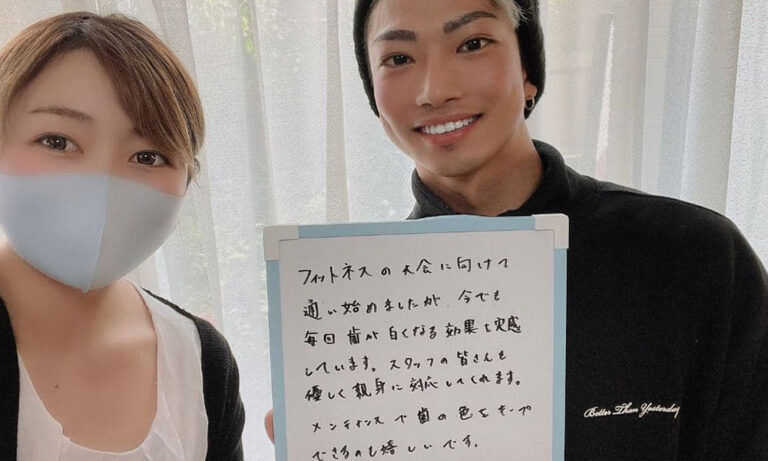 フィットネスの大会に向けて
通い始めましたが、今でも
毎回歯が白くなる効果を実感
しています。スタッフの皆さんも
優しく親身に対応してくれます。
メンテナンスで歯の色をキープ
できるのも嬉しいです。
Better Than Yesterday